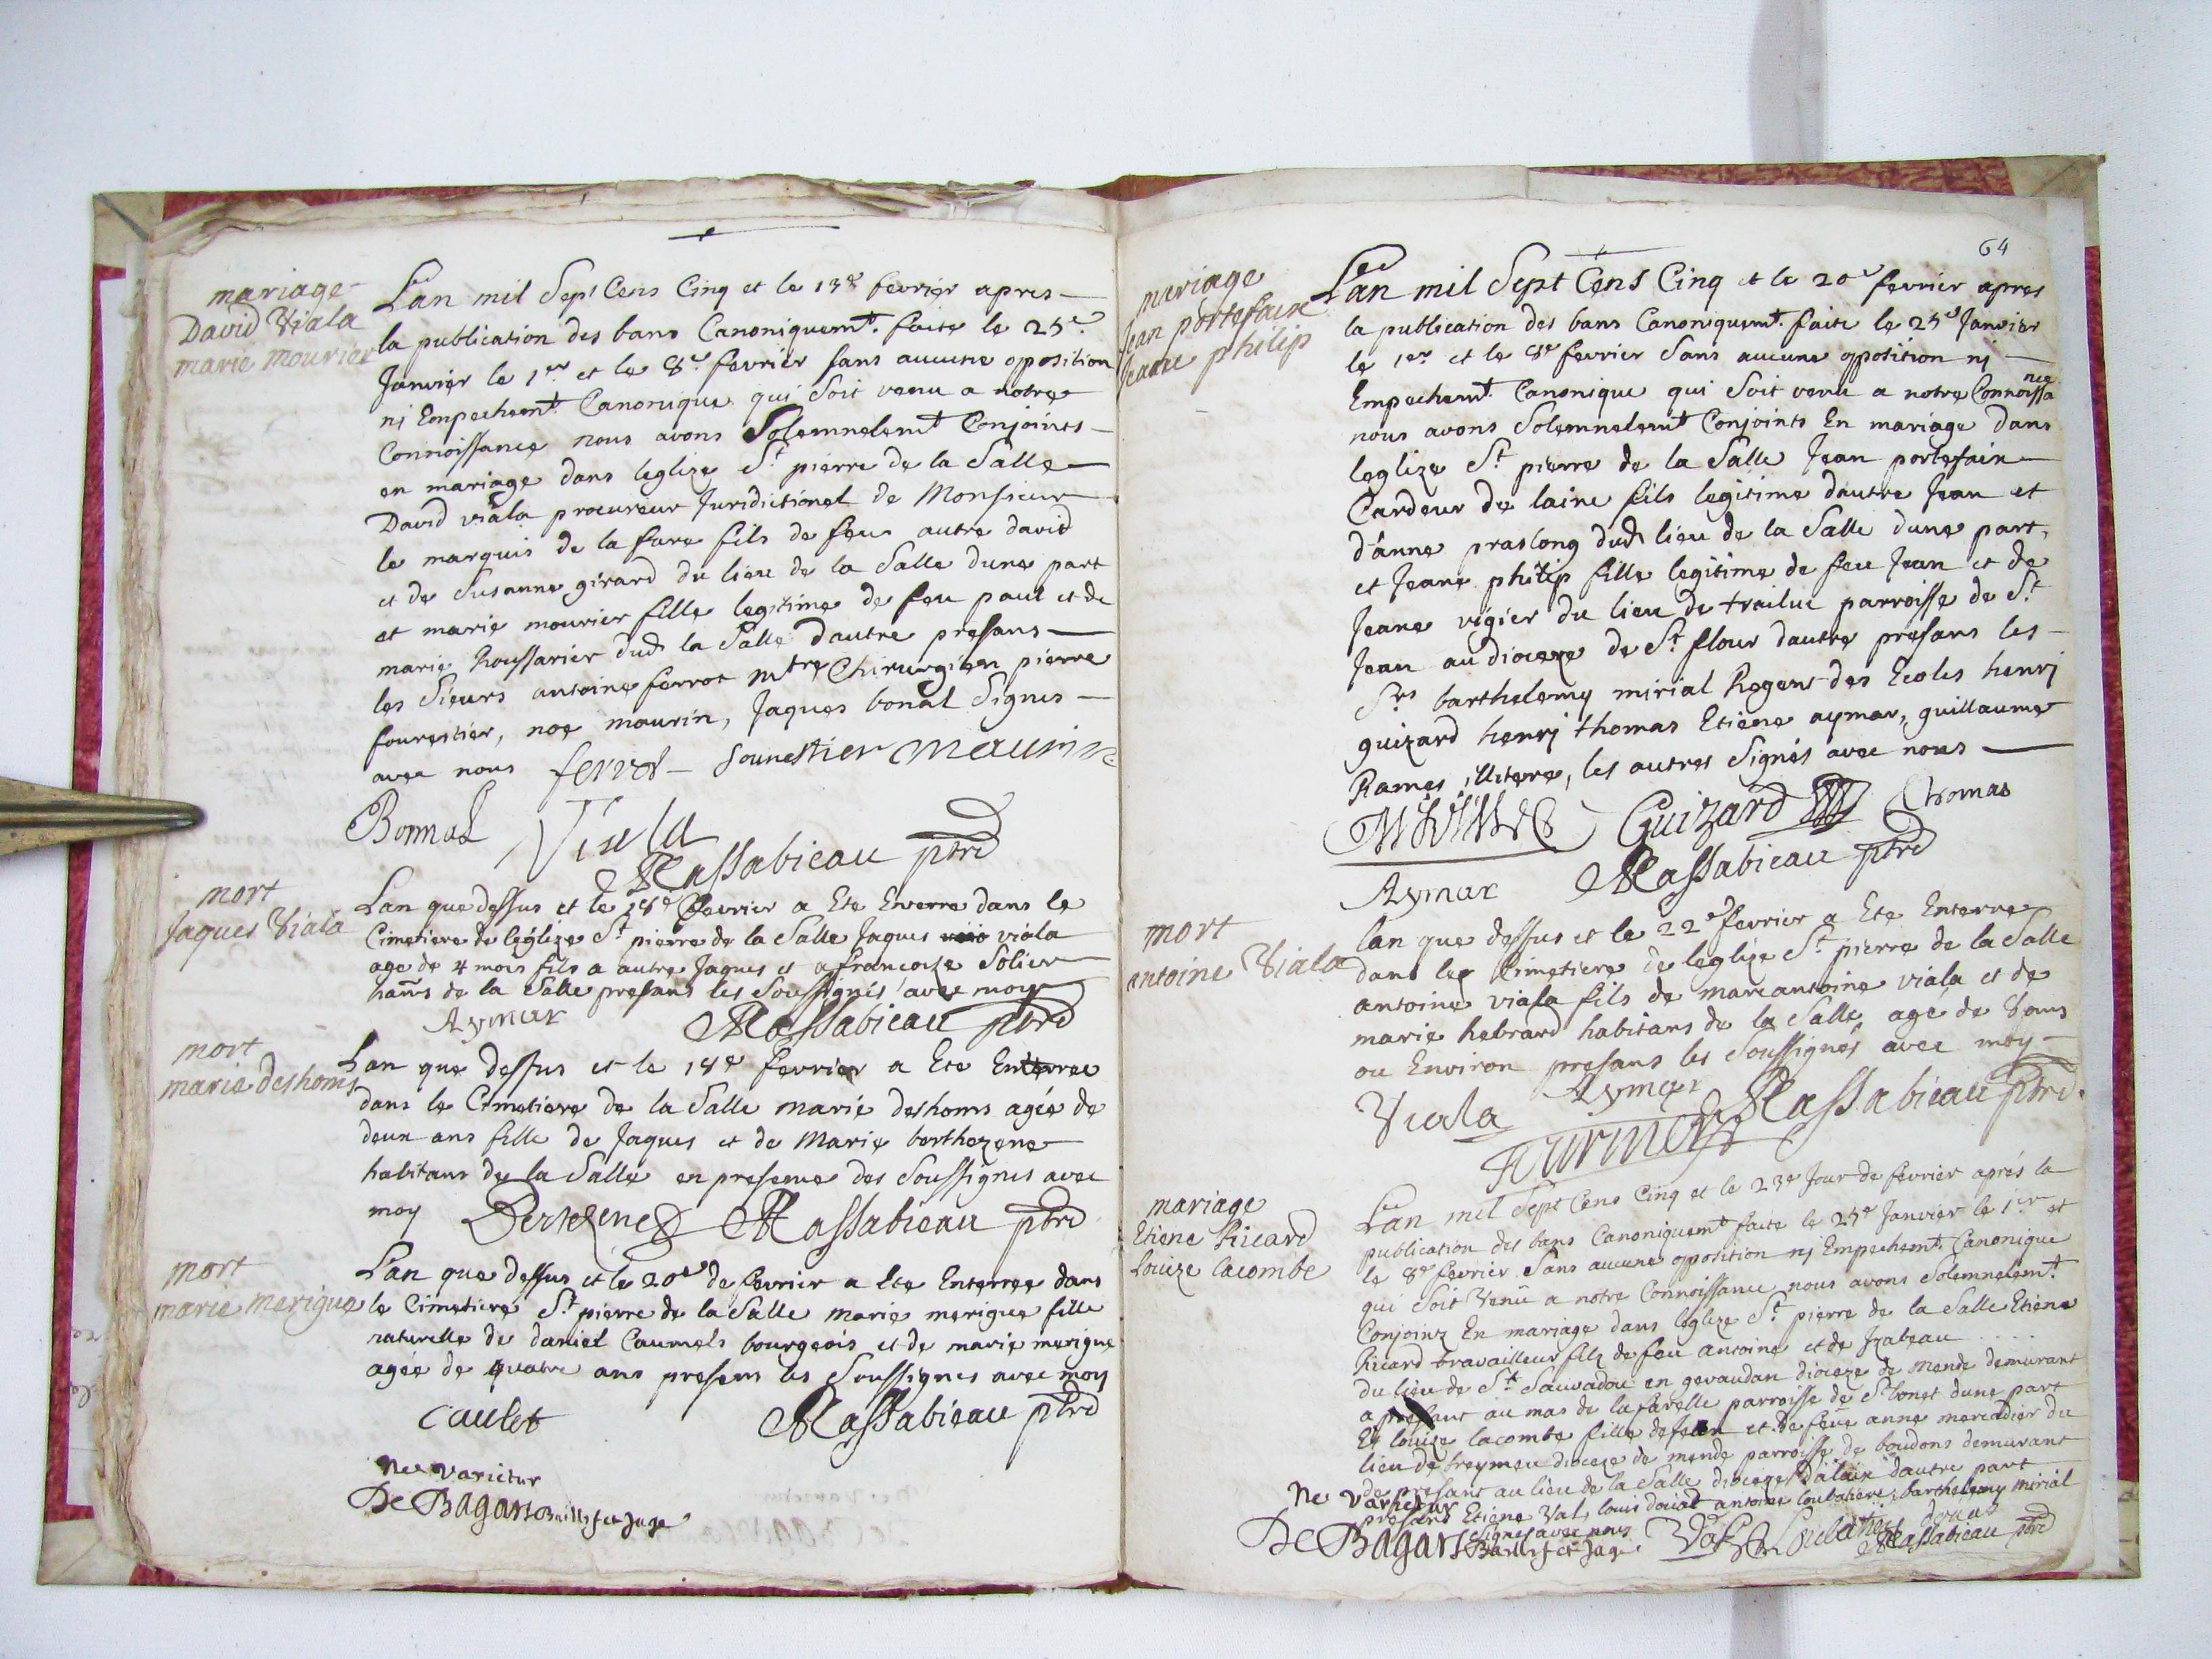 mariage
David Viala
marie mourier
Lan mil Sept Cens Cinq et le 13e fevrier apres
la publication des bans Canoniquemt. faite le 25e.
Janvier le 1er et le 8e. fevrier sans aucune oposition
nj Empechemt. Canonique qui soit venu a notre
Connoissance nous avons Solemnelemt Conjoints
en mariage dans leglize St pierre de la Salle
David viala procureur Juridictionel de Monsieur
le marquis de la fare fils de feu autre david
et de Susanne girard du lieu de la Salle dune part
et marie mourier fille legitime de feu paul et de
marie Roussarier dud la Salle dautre presans
les Sieurs antoine ferrot mtre Chirurgien pierre
fourestier, noe maurin, Jaques bonal Signes
avec nous ferrot fourestier Maurin
Bonnal Viala
Massabieau ptre
mort
Jaques Viala
Lan que dessus et le 18e fevrier a Ete Enterre dans le
Cimetiere de leglize St pierre de la Salle Jaques viala
age de 4 mois fils a autre Jaques et a francoize Solier
hans de la Salle presans les Soussignés avec moy
Aymar Massabieau ptre
mort
marie deshoms
Lan que dessus et le 18e fevrier a Ete Enterree
dans le Cimetiere de la Salle marie deshoms agée de
deux ans fille de Jaques et de Marie berthezene
habitans de la Salle en presence des Soussignes avec
moy Massabieau ptre
mort
marie merigue
Lan que dessus et le 20e de fevrier a Ete Enterree dans
le Cimetiere St pierre de la Salle marie merigue fille
naturelle de daniel Caumels bourgeois et de marie merigue
agée de quatre ans presens les Soussignes avec moy
Caulet Massabieau ptre
Ne varietur
De Bagars Baillif et Juge
64
mariage
Jean portefaix
Jeane philip
Lan mil Sept Cens Cinq et le 20e fevrier apres
la publication des bans Canoniquemt. faite le 25e Janvier
le 1er et le 8e fevrier Sans aucune oposition nj
Empechemt. Canonique qui Soit venu a notre Connoissance
nous avons Solemnelemt Conjoints En mariage dans
leglize St pierre de la Salle Jean portefaix
Cardeur de laine fils legitime dautre Jean et
d'anne praslong dud lieu de la Salle dune part,
et Jeane philip fille legitime de feu Jean et de
Jeane vigier du lieu de trailuc parroisse de St
Jean au dioceze de St flour dautre presans les
Srs barthelemy mirial Regent des Ecoles henrj
guizard henrj thomas Etiene aymar, guillaume
Rames illitere, les autres Signés avec nous
Guizard Thomas
Aymar Massabieau ptre
mort
antoine Viala
lan que dessus et le 22e fevrier a Ete Enterre
dans le Cimetiere de leglize St pierre de la Salle
antoine viala fils de marcantoine viala et de
marie hebrard habitans de la Salle agé de 8 ans
ou Environ presans les Soussignés avec moy
Viala Aymar Massabieau ptre.
mariage
Etiene Ricard
Louize lacombe
Lan mil Sept Cens Cinq et le 23e Jour de fevrier aprés la
publication des bans Canoniquemt faite le 25e Janvier le 1er et
le 8e fevrier Sans aucune oposition nj Empechemt. Canonique
qui Soit Venu a notre Connoissance nous avons Solemnelemt.
Conjoinz En mariage dans leglize St pierre de la Salle Etiene
Ricard travailleur filz de feu antoine et de Izabeau ....
du lieu de St Sauvadou en gevaudan dioceze de Mende demurant
a presant au mas de lafarelle parroisse de St bonet dune part
Et louize lacombe fille de feu et de feüe anne mercadier du
lieu de dioceze de mende parroisse de boudons demurant
de presant au lieu de la Salle dioceze dalaix dautre part
presans Etiene Val, louis douat antoine loubatiere, barthelemy mirial
Signes avec nous
Ne varietur
De Bagars Baillif et Juge
Massabieau ptre